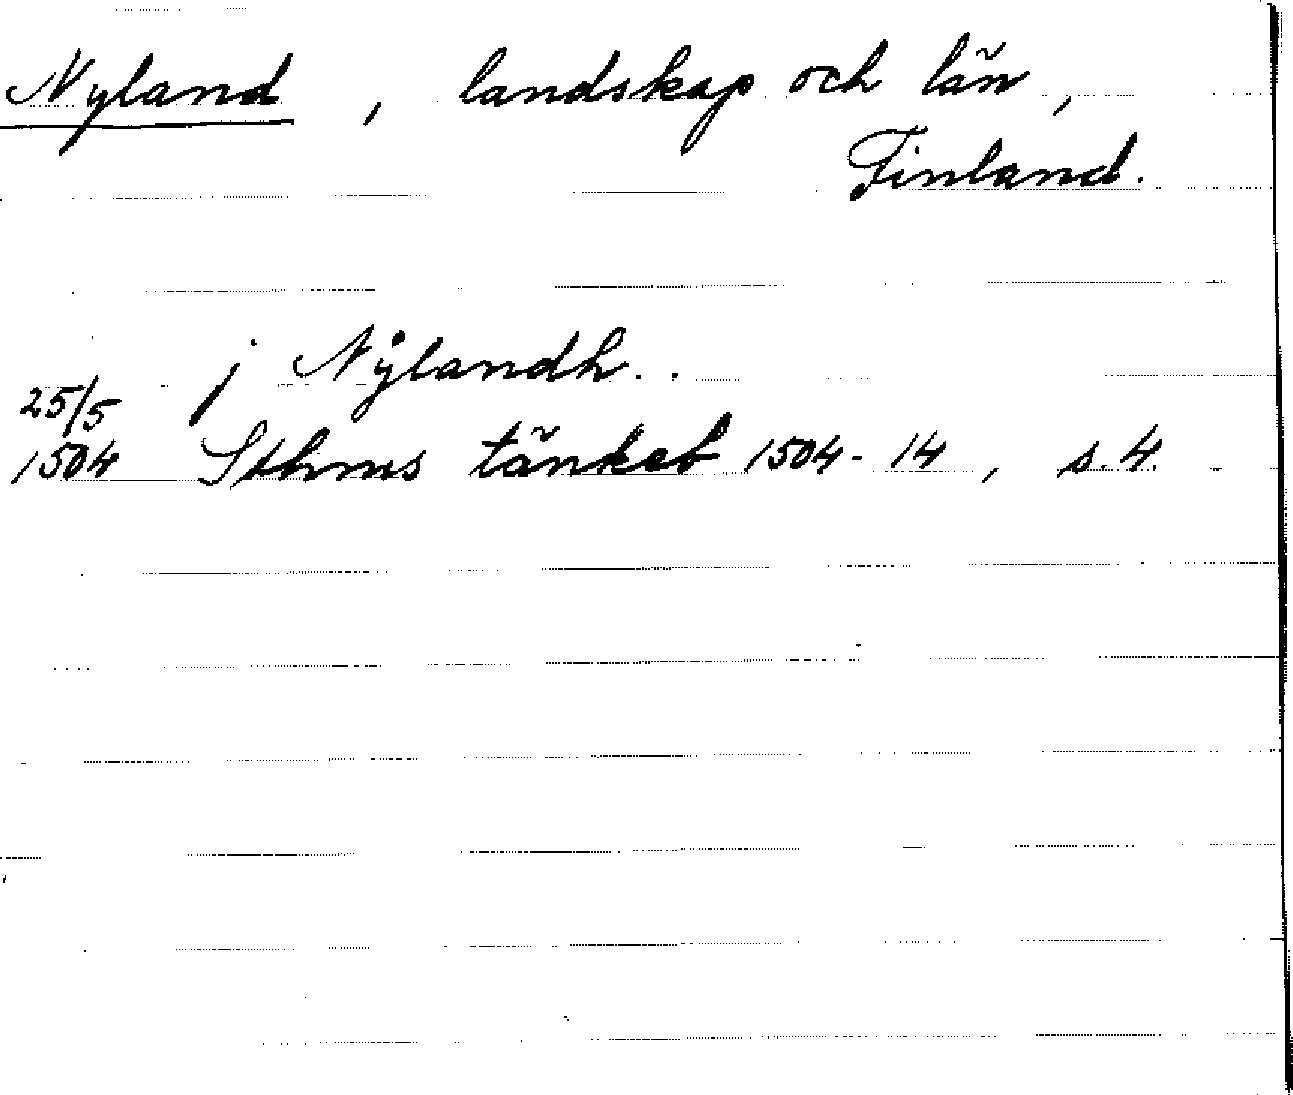 Nyland, landskap och län,
Finland.
j Nÿlandh..
25/5
1504 Sthms tänkeb 1504-14, s. 4.